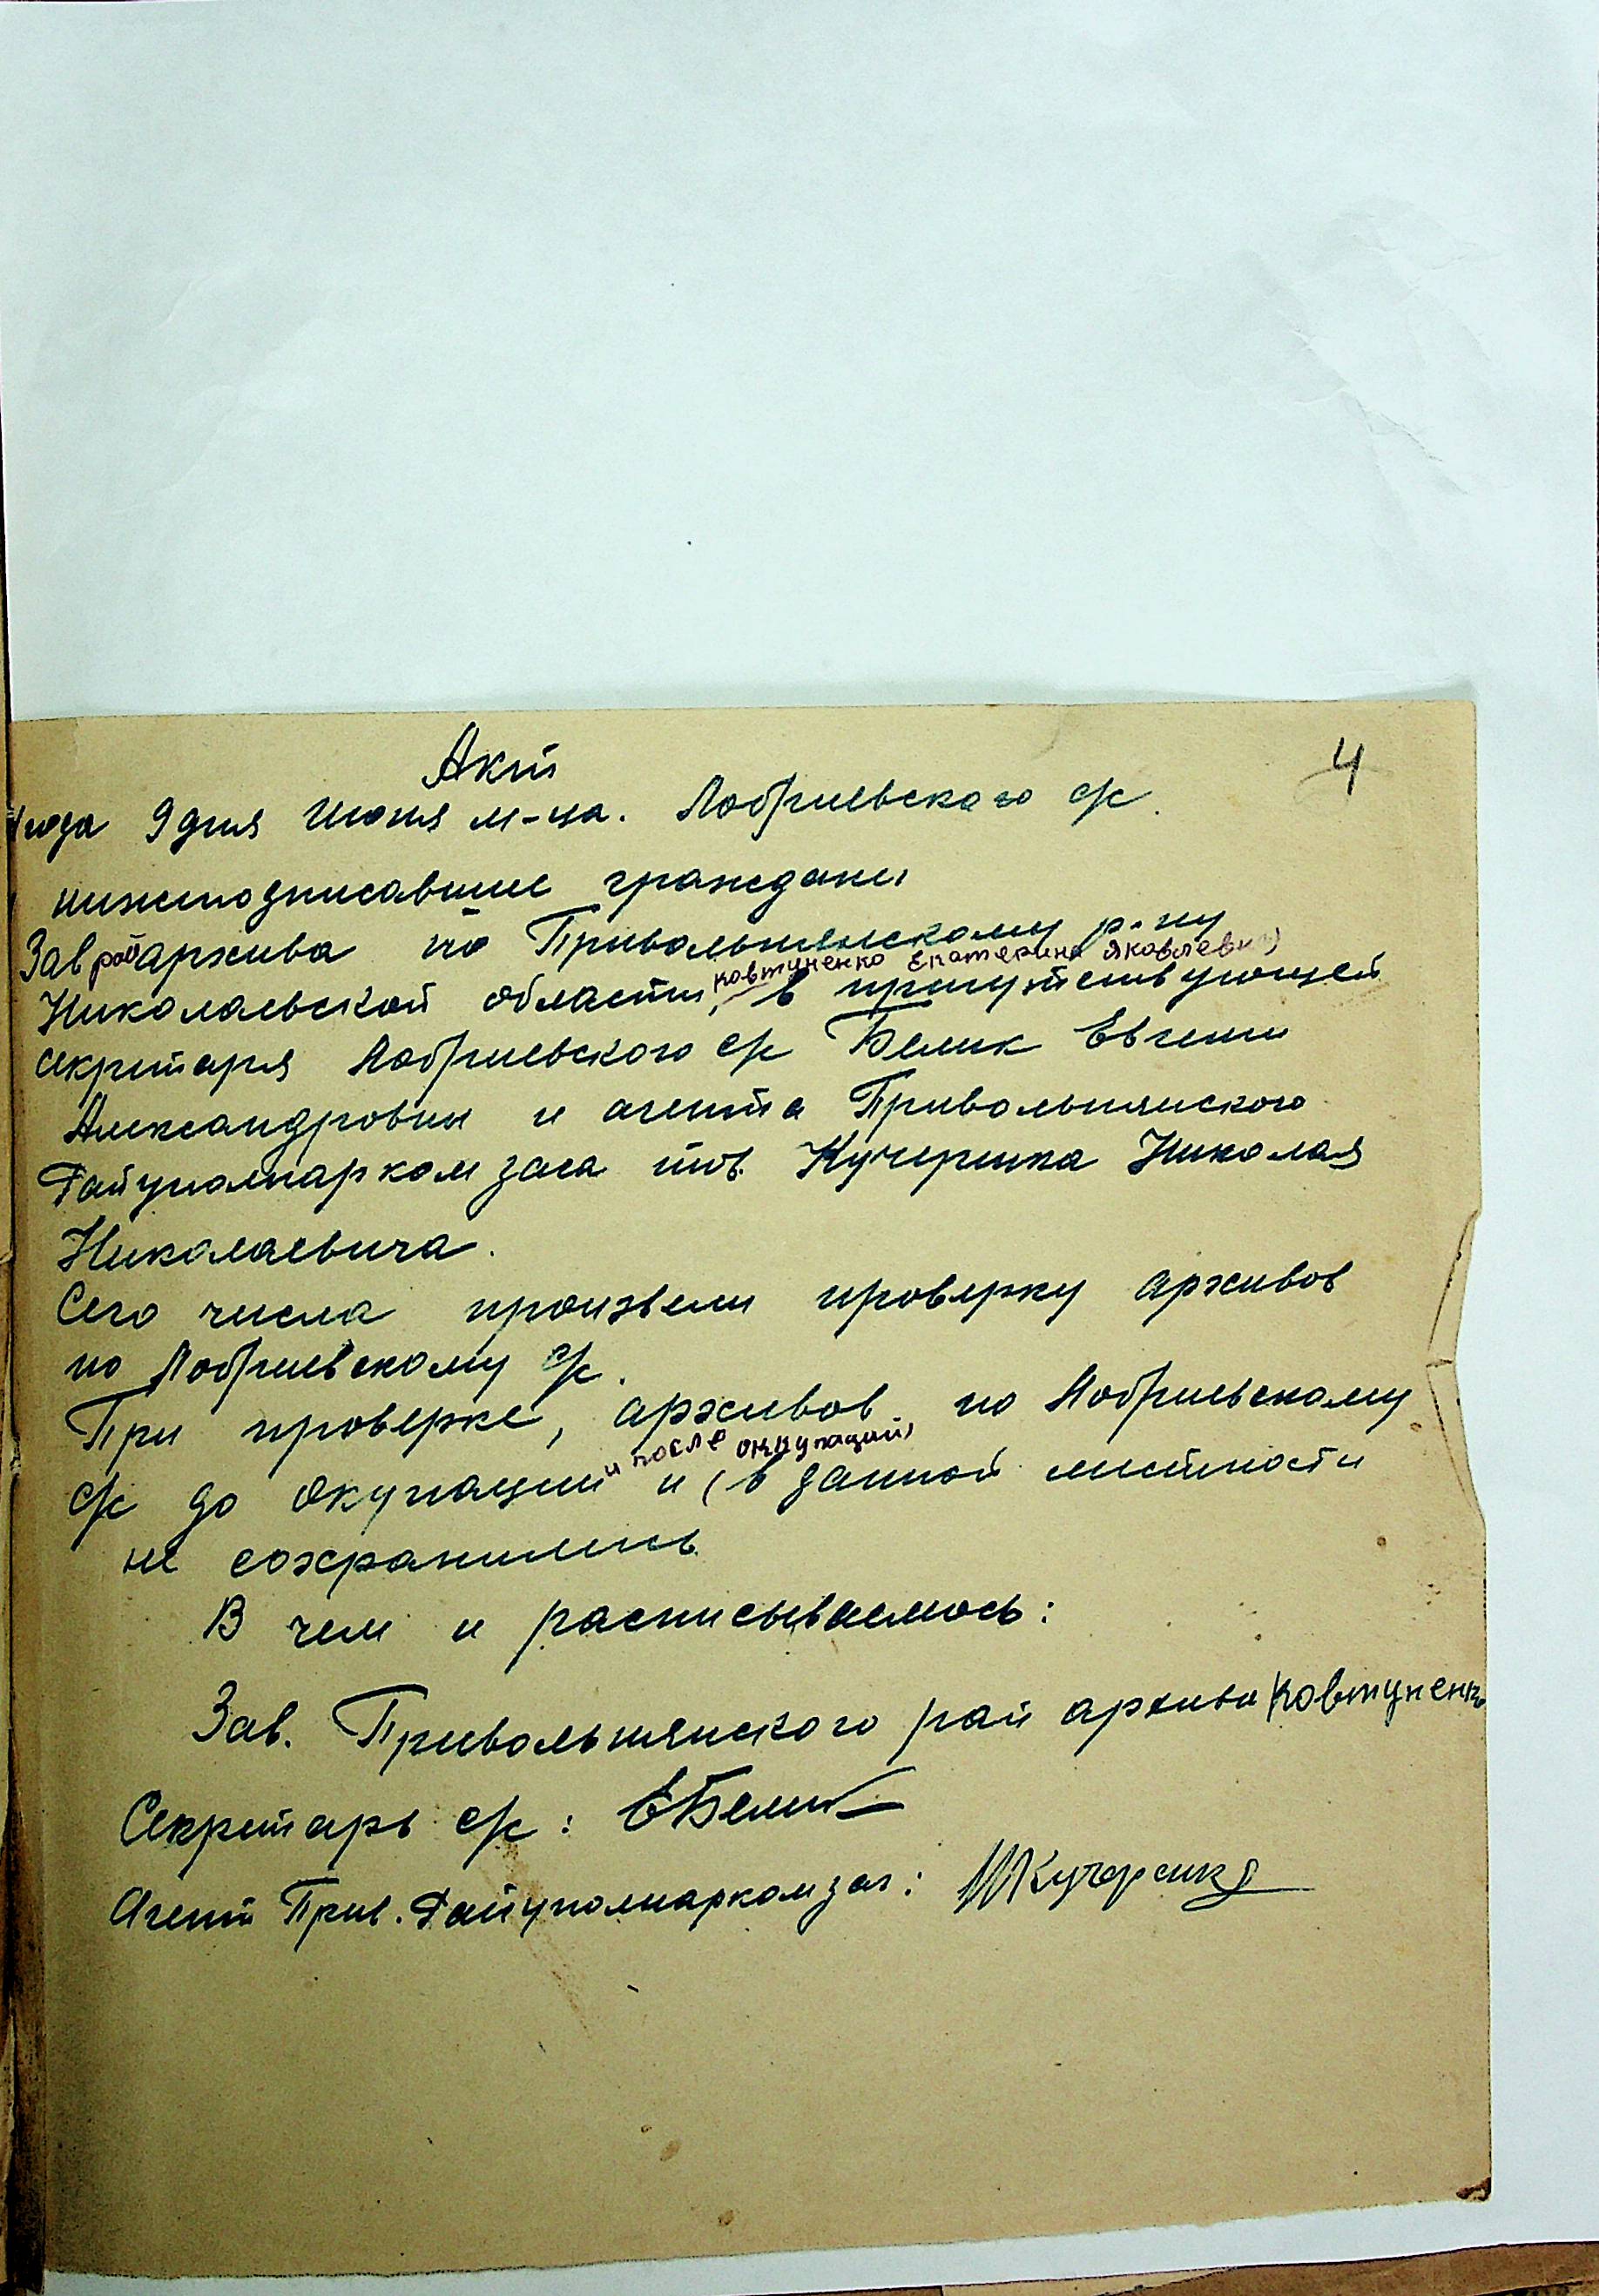 Акт
4
года 9 дня Июня м-ца. Лобриевского с/с.
нижеподписавшие граждани
Зав райархива по Привольнянскому р-ну
ковтуненко Екатерина Яковлевны
Николаевской области, в присутствующей
секретаря Лобриевского с/с Белик Евгении
Александровны и агента Привольнянского
Райуполнаркомзага тов. Кучеренка Николая
Николаевича.
Сего числа произвели проверку архивов
по Лобриевскому с/с.
При проверке, архивов по Лобриевскому
и после оккупации,
с/с до окупации и (в данной местности
не сохранились
В чем и расписываемось:
Зав. Привольнянского рай архива Ковтуненко
Секретарь с/с: ЕБелик
Агент Прив. Райуполнаркомзаг: НКучеренко